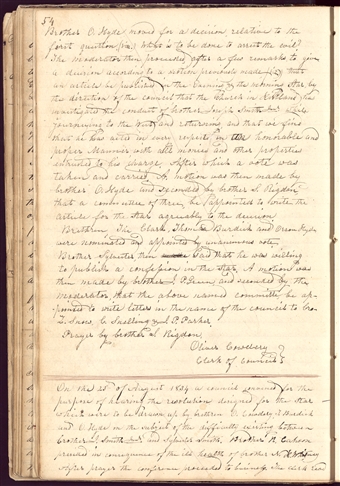 54
Brother O. Hyde moved for a decision relative to the
first question (viz) what is to be done to arrest the evil.
The moderator then proceeded after a few remarks to give
a decision according to a motion previously made, that
an article be published in the Evening & the morning Star, by
the direction of the council that the Church in Kirtland has
investigated the conduct of brother Joseph Smith Jun.
journeying to the West, and returning, and that we find
that he has acted in every respect in an honorable and
proper manner with all monies and other properties
entrusted to his charge. After which a vote was
taken and carried. A motion was then made by
brother O. Hyde and seconded by brother S. Rigdon
that a committee of three be appointed to write the
article for the Star agreeably to the decision.
Brethren The Clark, Thomas Burdick and Orson Hyde
were nominated and appointed by unanimous vote.
Brother Sylvester then said that he was willing
to publish a confession in the Star. A motion was
then made by brother J. P. Green, and seconded by the
moderator that the above named committee be ap-
pointed to write letters in the name of the council to
Z. Snow, C. Snelling & J. P. Parker.
Prayer by brother S. Rigdon.
Oliver Cowdery
Clerk of council
On the 28th of August 1834 a council convened for the
purpose of hearing the resolution designed for the Star
which were to be drawn up by brethren O. Cowdery T. Burdick
and O. Hyde on the subject of the difficulty existing between
brother J. Smith Jun. and Sylvester Smith. Brother R. Cahoon
presided in consequence of the ill health of brother N. K. Whitney
After prayer the conference proceeded to business. The clerk read